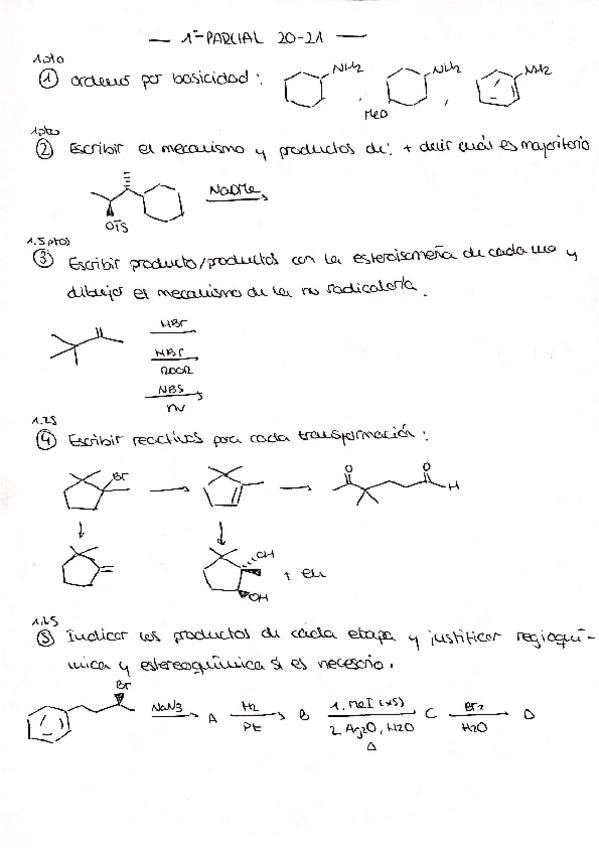 — 1º PARCIAL 20-21 —
1pto
① Ordenar por basicidad:
NH2
NH2
NH2
MeO
1pto
② Escribir el mecanismo y productos de: + decir cuál es mayoritario
NaOMe
OTs
1.5 ptos
③ Escribir producto/productos con la estereoisomería de cada uno y
dibujar el mecanismo de la no radicalaria.
HBr
HBr
ROOR
NBS
hν
1.25
④ Escribir reactivos para cada transformación:
Br
O
O
H
OH
OH
+ en
1.25
⑤ Indicar los productos de cada etapa y justificar regioquí-
mica y estereoquímica si es necesario.
Br
NaN3
A
H2
Pt
B
1. MeI (xs)
2 Ag2O, H2O
Δ
C
Br2
H2O
D